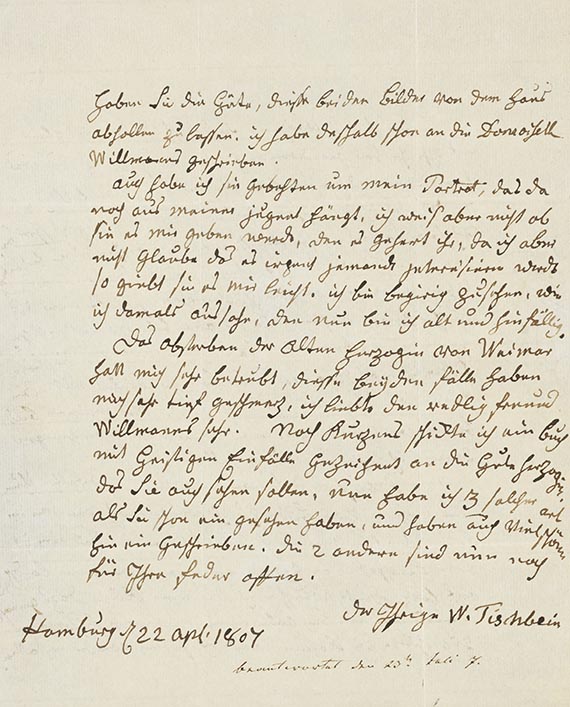 haben Sie die Güte, diesse beiden Bilder von dem Haus
abhollen zu lassen. ich habe deshalb schon an die Domoisell
Willmanns geschrieben.
auch habe ich sie gebehten um mein Portret, das da
noch aus meiner jugent hängt, ich weis aber nicht ob
sie es mir geben werde, den es gehert ihr, da ich aber
nicht Glaube das es irgent jemand interesieren wird
so giebt sie es mir leicht. ich bin begirig zu sehen, wie
ich damals aussahe, den nun bin ich alt und hinfällig.
Das absterben der alten Herzogin von Weimar
hatt mich sehr betrubt, diesse beyden fälle haben
mich sehr tief geschmerz, ich liebte den redlig freund
Willmanns sehr. Noch Kurzens schickte ich ein buch
mit Geistigen Einfälle Gezeichent an die Gute Herzogin,
das Sie auch sehen sollen, Nun habe ich 3 solcher art
als Sie schon ein gesehen haben, und haben auch Viel schönes
hin ein Geschrieben. die 2 andern sind nun noch
für Ihre feder offen.
Der Ihrige W. Tischbein
Hamburg d 22 apl. 1807
beantwortet den 23t Juli 7.